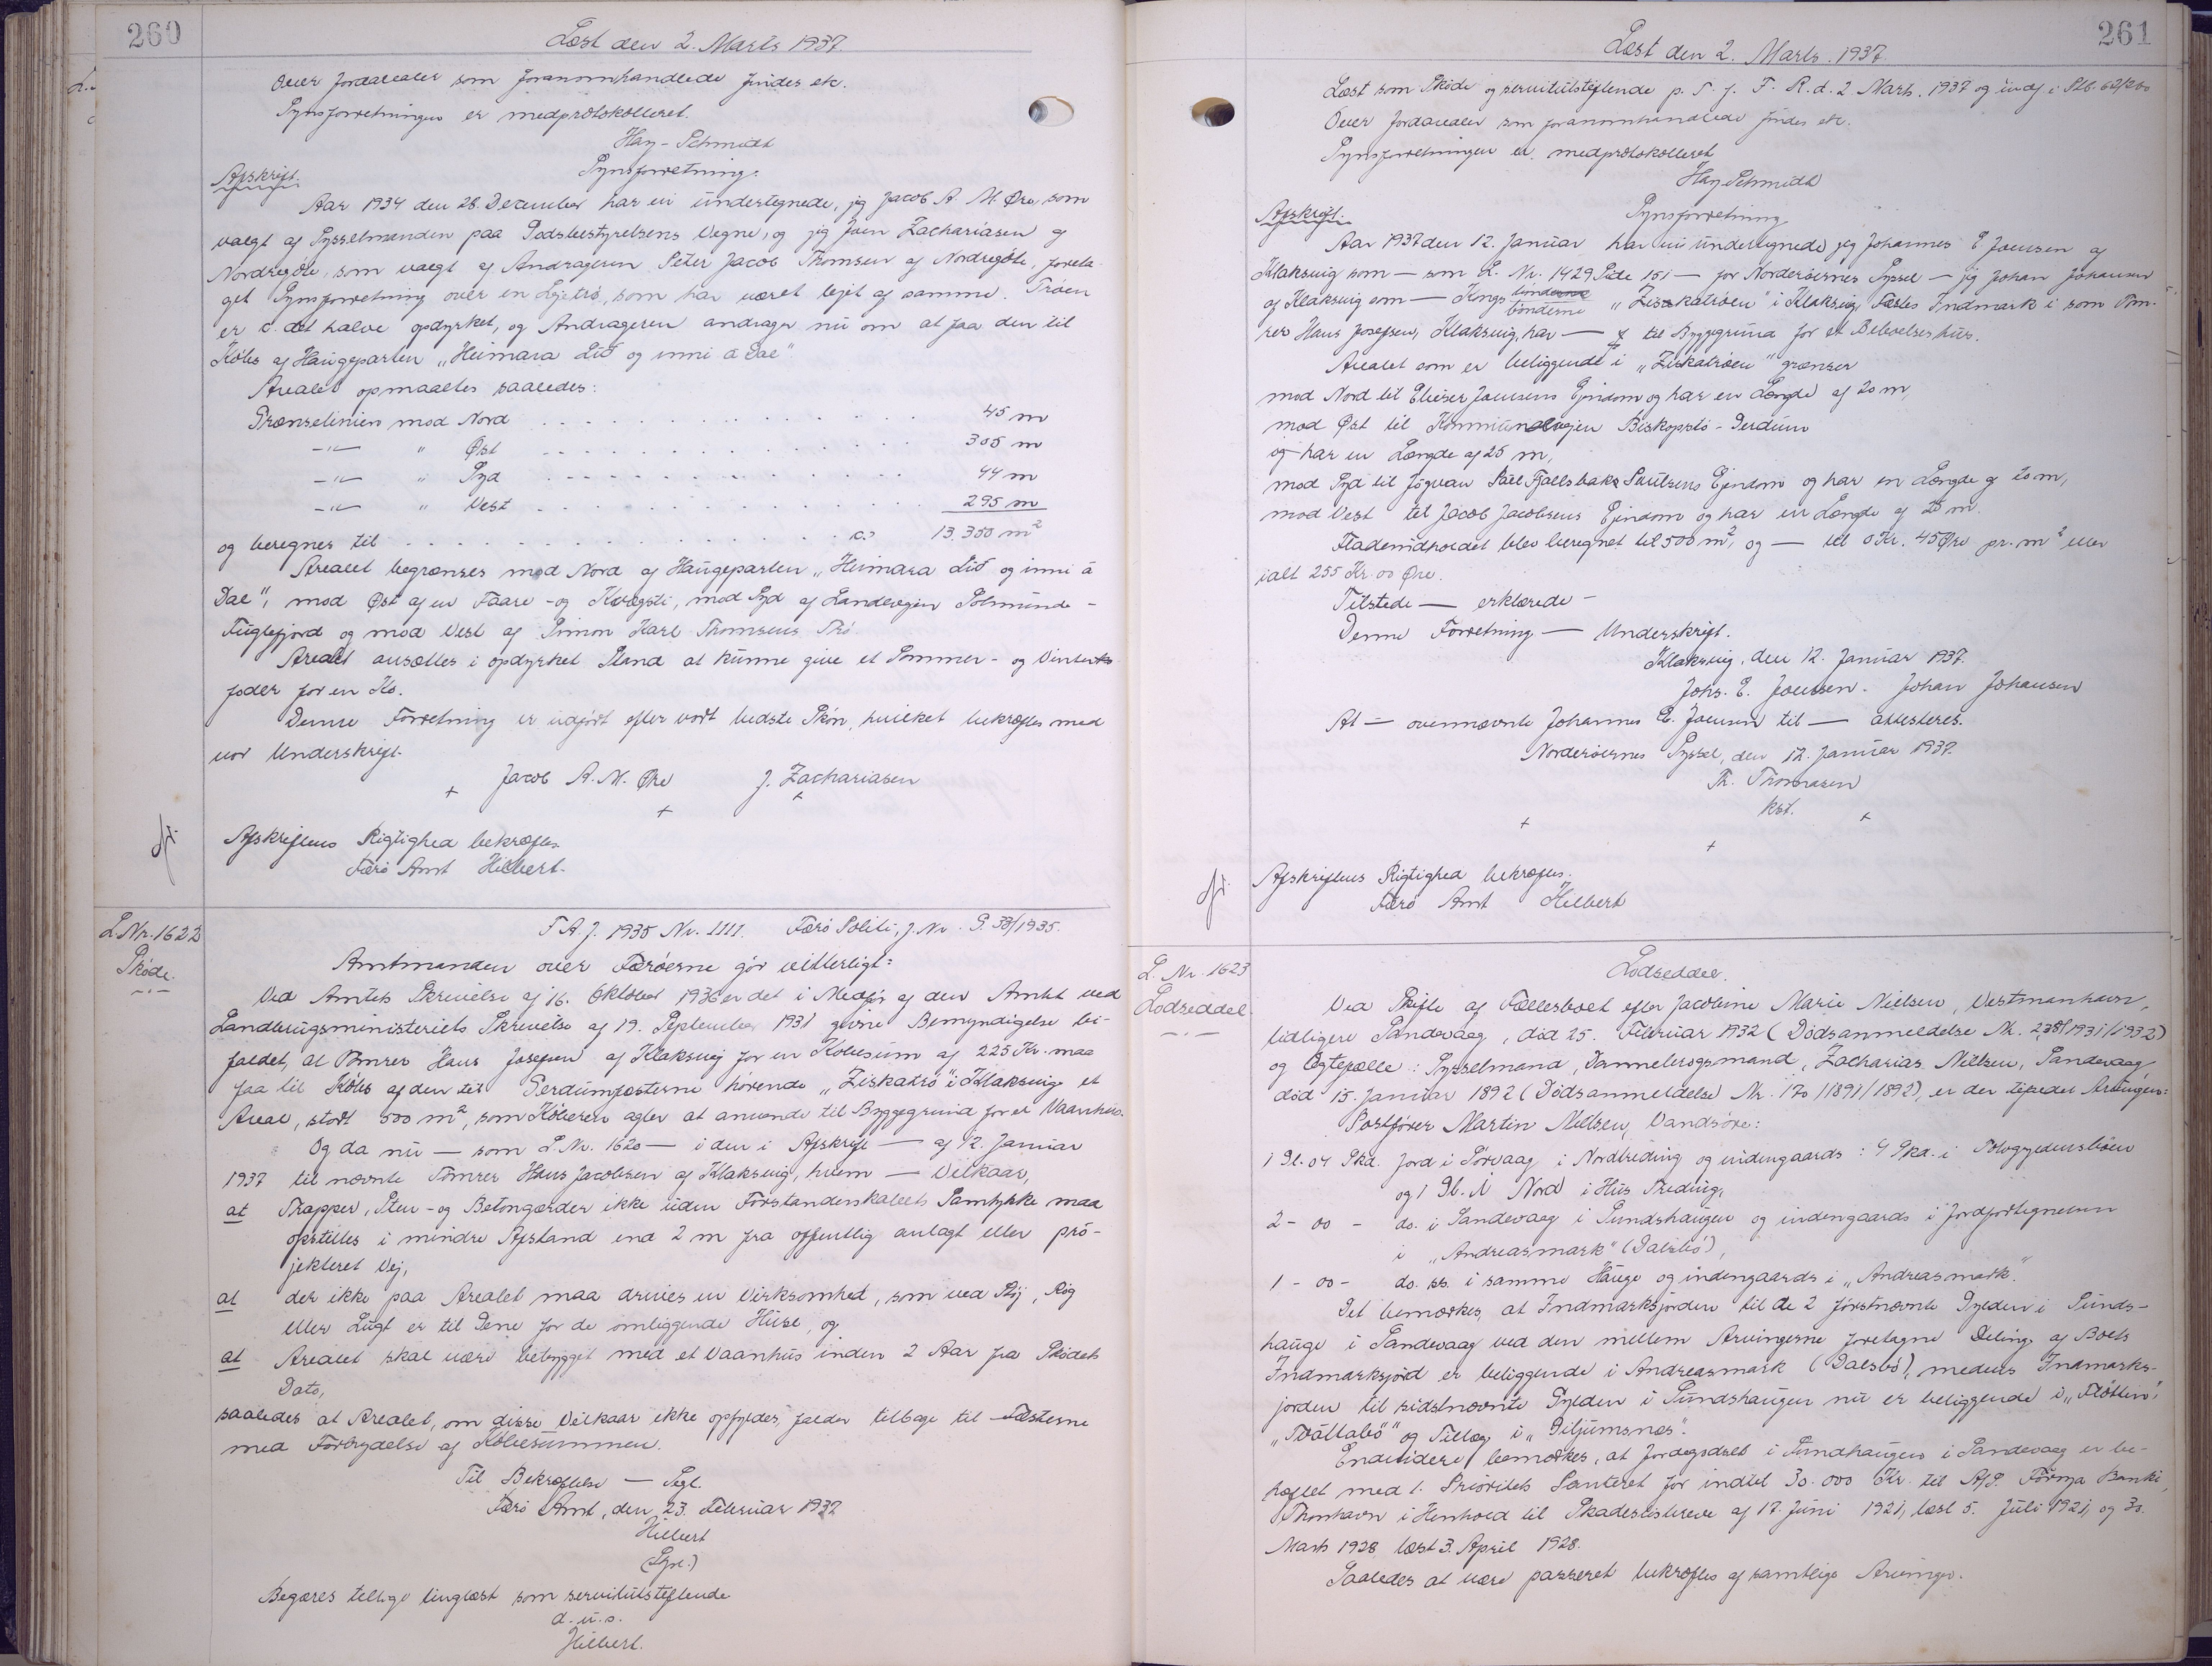 260
Læst den 2. Marts 1937.
Over Jordarealer som foranomhandlede findes etc.
Synsforretningen er medprotokolleret.
Hay-Schmidt
Afskrift.
Synsforretning.
Aar 1934 den 28. December har vi undertegnede, jeg Jacob A. M. Øre, som
valgt af Sysselmanden paa Godsbestyrelsens Vegne, og jeg Joen Zachariasen af
Nordregöte, som valgt af Andrageren Peter Jacob Thomsen af Nordregöte, foreta-
get Synsforretning over en Lejetrö, som har været lejet af samme. Tröen
er c. det halve opdyrket, og Andrageren andrager nu om at faa den til
Köbs af Haugeparten "Heimara Lið og inni á Dal"
Arealet opmaaltes saaledes:
Grænselinien mod Nord . . . . 45 m
-"- " Øst . . . . 305 m
-"- " Syd . . . . 44 m
-"- " Vest . . . . 295 m
og beregnes til . . . . c.? 13.300 m²
Arealet begrænses mod Nord af Haugeparten "Heimara Lið og inni á
Dal", mod Øst af en Faare- og Kvægsti, mod Syd af Landevejen Sölmunde-
Fuglefjord og mod Vest af Simon Karl Thomsens Trö.
Arealet ansættes i opdyrket Stand at kunne give et Sommer- og Vinterko-
foder for en Ko.
Denne Forretning er udfört efter vort bedste Skön, hvilket bekræftes med
vor Underskrift.
Jacob A. M. Øre J. Zachariasen
Afskriftens Rigtighed bekræftes
Færö Amt Hilbert.
L. Nr. 1622
Sköde.
F A. J. 1935 Nr. 1111. Færö Politi, J. Nr. G. 38/1935.
Amtmanden over Færöerne gör vitterligt:
Ved Amtets Skrivelse af 16. Oktober 1936 er det i Medför af den Amtet ved
Landbrugsministeriets Skrivelse af 19. September 1931 givne Bemyndigelse bi-
faldet, at Tömrer Hans Josefsen af Klaksvig for en Köbesum af 225 Kr. maa
faa til Köbs af den til Gerdumfæsterne hörende "Ziskatrö" i Klaksvig et
Areal, stort 500 m², som Köberen agter at anvende til Byggegrund for et Vaanhus.
Og da nu — som L Nr. 1620 — i den i Afskrift — af 12. Januar
1937 til nævnte Tömrer Hans Jacobsen af Klaksvig, hvem — Vilkaar,
at Trapper, Sten- og Betongærder ikke uden Forstanderskabets Samtykke maa
opstilles i mindre Afstand end 2 m fra offentlig anlagt eller pro-
jekteret Vej,
at der ikke paa Arealet maa drives en Virksomhed, som ved Stöj, Røg
eller Lugt er til Gene for de omliggende Huse, og
at Arealet skal være bebygget med et Vaanhus inden 2 Aar fra Skødets
Dato,
saaledes at Arealet, om disse Vilkaar ikke opfyldes, falder tilbage til Fæsterne
med Fortrydelse af Köbesummen.
Til Bekræftelse — Segl.
Færö Amt, den 23. Februar 1937
Hilbert
(Sgn.)
Begæres tillige tinglæst som servitutstiftende
d. u. s.
Hilbert.
261
Læst den 2. Marts. 1937
Læst som Sköde og servitutstiftende p. T. f. F. R. d. 2. Marts. 1937 og indf i Stb. 62/200
Over Jordarealer som foranomhandlede findes etc.
Synsforretningen er medprotokolleret
Hay Schmidt
Afskrift.
Synsforretning
Aar 1937 den 12. Januar har vi undertegnede jeg Johannes E Joensen af
Klaksvig som — som L. Nr. 1429 Side 151 — for Norderöernes Syssel — jeg Johan Johansen
af Klaksvig som — Kongsbönderne "Ziskatröen" i Klaksvig Fæstes Indmark i som Töm-
rer Hans Josefsen, Klaksvig, har — af til Byggegrund for et Beboelseshus.
Arealet som er beliggende i "Ziskatröen" grænser
mod Nord til Elieser Joensens Ejendom og har en Længde af 20 m,
mod Øst til Kommunalvejen Biskopstö-Gerdum
og har en Længde af 25 m,
mod Syd til Jógvan Paul Fjallsbak Poulsens Ejendom og har en Længde af 20 m,
mod Vest til Jacob Jacobsens Ejendom og har en Længde af 25 m.
Fladeindholdet blev beregnet til 500 m², og — til 0 Kr. 45 Øre pr. m² eller
ialt 255 Kr. 00 Øre.
Tilstede — erklærede —
Denne Forretning — Underskrift.
Klaksvig, den 12. Januar 1937.
Johs. E. Joensen. Johan Johansen
At — ovennævnte Johannes E. Joensen til — attesteres.
Norderöernes Syssel, den 12. Januar 1937.
Th. Thomasen
kst.
Afskriftens Rigtighed bekræftes.
Færö Amt Hilbert
L. Nr. 1623
Lodseddel.
Lodseddel.
Ved Skifte af Fællesboet efter Jacobine Marie Nielsen, Vestmanhavn,
tidligere Sandevaag, död 25. Februar 1932 (Dödsanmeldelse Nr. 238/1931/1932)
og Ægtefælle: Sysselmand, Dannebrogsmand, Zacharias Nielsen, Sandevaag,
död 15. Januar 1892 (Dödsanmeldelse Nr. 170/1891/1892), er der tilfaldet Arvingen:
Postförer Martin Nielsen, Vandsöre:
1 Gl. 04 Skd. Jord i Sörvaag i Nordtreding og indengaards: 4 Skd. i Potogydensböen
og 1 Gl. i Nord i Hús Treding,
2 - 00 - do. i Sandevaag i Sundshaugen og indengaards i Jordfortegnelsen
i "Andreasmark" (Dalsbö),
1 - 00 - do. ss. i samme Hauge og indengaards i "Andreasmark."
Det bemærkes, at Indmarksjorden til de 2 förstnævnte Gylden i Sunds-
hauge i Sandevaag ved den mellem Arvingerne foretagne Deling af Boets
Indmarksjord er beliggende i Andreasmark (Dalsbö), medens Indmarks-
jorden til sidstnævnte Gylden i Sundshaugen nu er beliggende i "Flöttin",
"Tváttabö" og Tillæg i "Giljumsnes".
Endvidere bemærkes, at Jordegodset i Sundhaugen i Sandevaag er be-
hæftet med 1. Prioritets Panteret for indtil 30.000 Kr. til A/S. Föroya Banki,
Thorshavn i Henhold til Skadeslösbreve af 17. Juni 1921, læst 5. Juli 1921, og 30.
Marts 1928 læst 3. April 1928.
Saaledes at være passeret bekræftes af samtlige Arvinger.